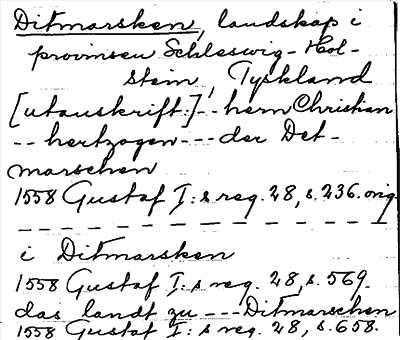 Ditmarsken, landskap i
provinsen Schleswig-Hol-
stein, Tyskland
[utanskrift:]--herrn Christian
-- hertzogen --- der Det-
marschen
1558 Gustaf I:s reg. 28, s. 236. orig.
i Ditmarsken
1558 Gustaf I:s reg. 28, s. 569.
das landt zu --- Ditmarschen
1558 Gustaf I:s reg. 28, s. 658.